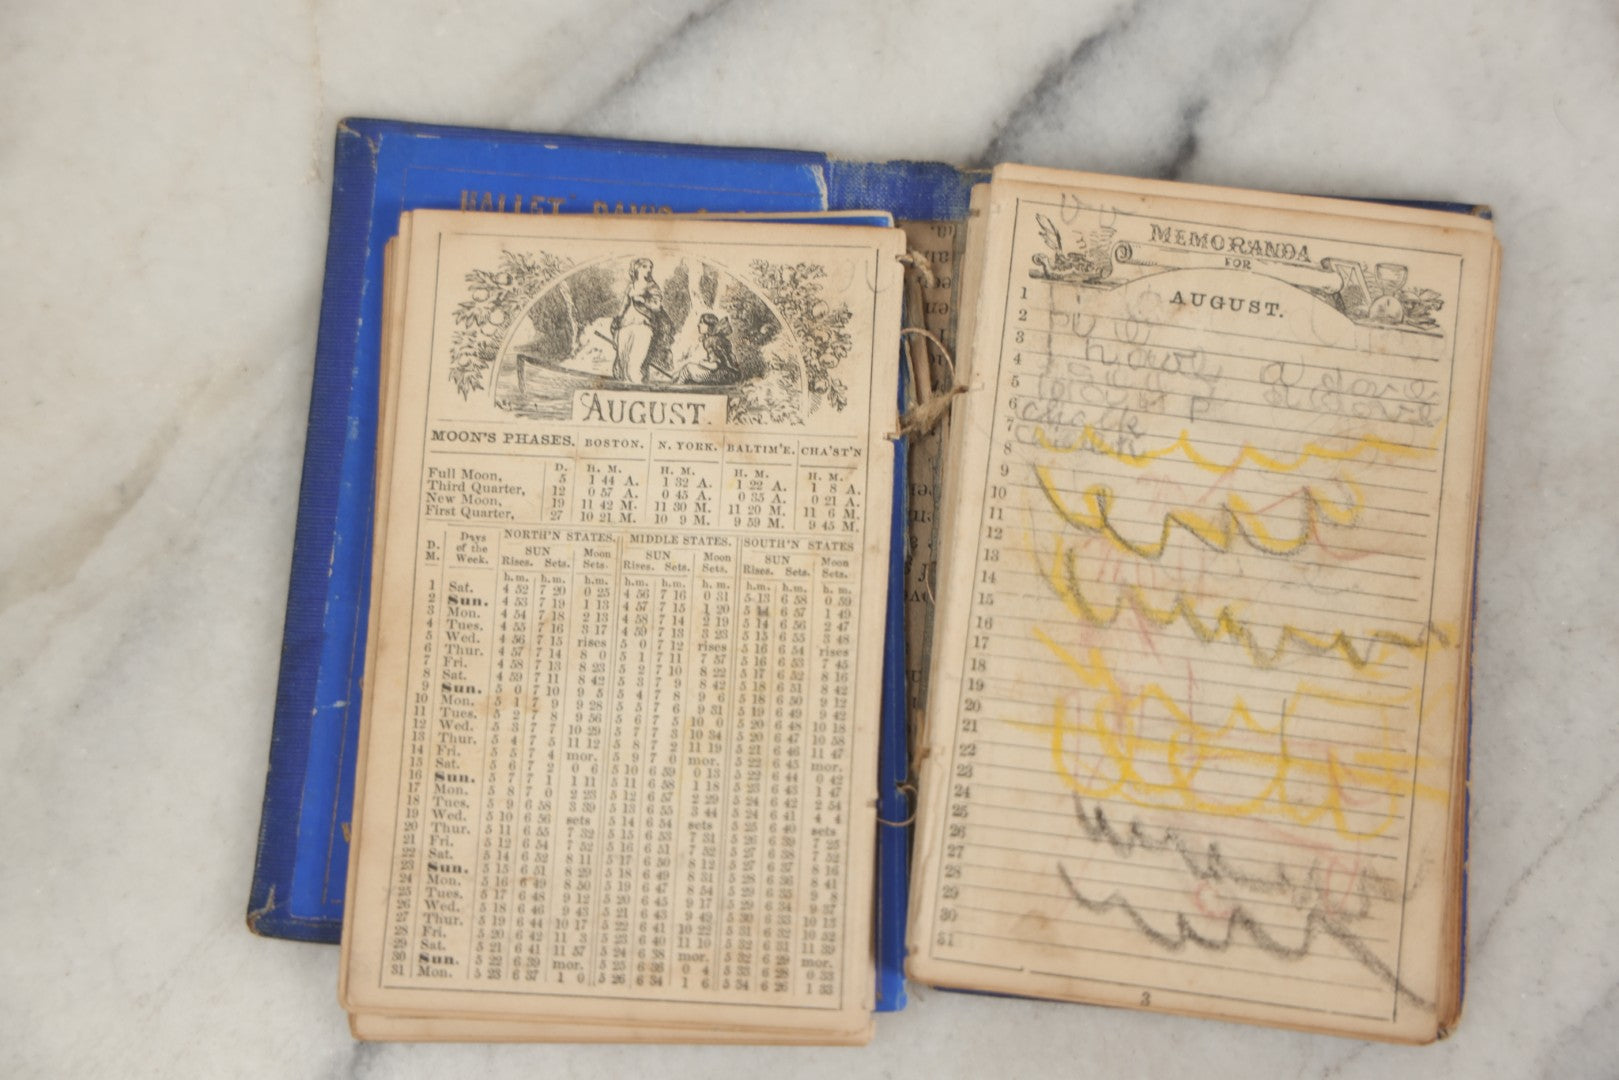 HALLET
AUGUST.
MOON'S PHASES. BOSTON. N. YORK. BALTIM'E. CHA'ST'N
D. H. M. H. M. H. M. H. M.
Full Moon, 5 1 44 A. 1 32 A. 1 22 A. 1 8 A.
Third Quarter, 12 0 57 A. 0 45 A. 0 35 A. 0 21 A.
New Moon, 19 11 42 M. 11 30 M. 11 20 M. 11 6 M.
First Quarter, 27 10 21 M. 10 9 M. 9 59 M. 9 45 M.
D. M. Days of the Week. NORTH'N STATES. MIDDLE STATES. SOUTH'N STATES
SUN Moon SUN Moon SUN Moon
Rises. Sets. Sets. Rises. Sets. Sets. Rises. Sets. Sets.
h.m. h.m. h.m. h.m. h.m. h. m. h.m. h.m. h. m.
1 Sat. 4 52 7 20 0 25 4 56 7 16 0 31 5 13 6 58 0 59
2 Sun. 4 53 7 19 1 13 4 57 7 15 1 20 5 14 6 57 1 49
3 Mon. 4 54 7 18 2 13 4 58 7 14 2 19 5 14 6 56 2 47
4 Tues. 4 55 7 16 3 17 4 59 7 13 3 23 5 15 6 55 3 48
5 Wed. 4 56 7 15 rises 5 0 7 12 rises 5 16 6 54 rises
6 Thur. 4 57 7 14 8 0 5 1 7 11 7 57 5 16 6 53 7 45
7 Fri. 4 58 7 13 8 23 5 2 7 10 8 22 5 17 6 52 8 16
8 Sat. 4 59 7 11 8 42 5 3 7 9 8 42 5 18 6 51 8 42
9 Sun. 5 0 7 10 9 5 5 4 7 8 9 6 5 18 6 50 9 12
10 Mon. 5 1 7 9 9 28 5 5 7 6 9 31 5 19 6 49 9 42
11 Tues. 5 2 7 8 9 56 5 6 7 5 10 0 5 20 6 48 10 18
12 Wed. 5 3 7 7 10 29 5 7 7 3 10 34 5 20 6 47 10 58
13 Thur. 5 4 7 5 11 12 5 8 7 2 11 19 5 21 6 46 11 47
14 Fri. 5 5 7 4 mor. 5 9 7 0 mor. 5 22 6 45 mor.
15 Sat. 5 6 7 2 0 6 5 10 6 59 0 13 5 22 6 44 0 42
16 Sun. 5 7 7 1 1 11 5 11 6 58 1 18 5 23 6 43 1 47
17 Mon. 5 8 7 0 2 23 5 12 6 57 2 29 5 24 6 42 2 54
18 Tues. 5 9 6 58 3 39 5 13 6 55 3 44 5 24 6 41 4 4
19 Wed. 5 10 6 56 sets 5 14 6 54 sets 5 25 6 40 sets
20 Thur. 5 11 6 55 7 32 5 15 6 53 7 31 5 26 6 39 7 25
21 Fri. 5 12 6 54 7 52 5 16 6 51 7 52 5 27 6 38 7 52
22 Sat. 5 14 6 52 8 11 5 17 6 50 8 12 5 27 6 36 8 16
23 Sun. 5 15 6 51 8 29 5 18 6 49 8 31 5 28 6 36 8 41
24 Mon. 5 16 6 49 8 50 5 19 6 47 8 54 5 29 6 35 9 8
25 Tues. 5 17 6 48 9 12 5 20 6 45 9 17 5 29 6 34 9 37
26 Wed. 5 18 6 46 9 43 5 21 6 43 9 49 5 30 6 33 10 13
27 Thur. 5 19 6 44 10 17 5 22 6 41 10 22 5 31 6 32 10 52
28 Fri. 5 20 6 42 11 3 5 23 6 40 11 10 5 32 6 31 11 39
29 Sat. 5 21 6 41 11 57 5 24 6 38 mor. 5 32 6 29 mor.
30 Sun. 5 22 6 39 mor. 5 25 6 36 0 4 5 33 6 28 0 33
31 Mon. 5 23 6 37 1 0 5 26 6 34 1 6 5 34 6 26 1 33
MEMORANDA
FOR
AUGUST.
1
2
3
4 I have a dove
5
6
7
8
9
10
11
12
13
14
15
16
17
18
19
20
21
22
23
24
25
26
27
28
29
30
31
3